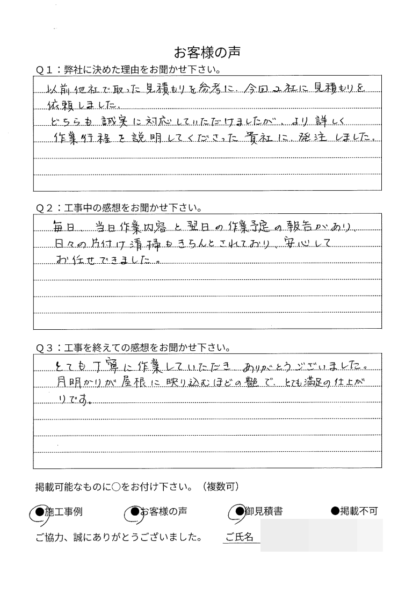 お客様の声
Q１：弊社に決めた理由をお聞かせ下さい。
以前他社で取った見積もりを参考に、今回2社に見積もりを
依頼しました。
どちらも誠実に対応していただけましたが、より詳しく
作業行程を説明してくださった貴社に、発注しました。
Q２：工事中の感想をお聞かせ下さい。
毎日、当日作業内容と翌日の作業予定の報告があり、
日々の片付け清掃もきちんとされており、安心して
お任せできました。
Q３：工事を終えての感想をお聞かせ下さい。
とても丁寧に作業していただき、ありがとうございました。
月明かりが屋根に映り込むほどの艶で、とても満足の仕上が
りです。
掲載可能なものに○をお付け下さい。（複数可）
●施工事例 ●お客様の声 ●御見積書 ●掲載不可
ご協力、誠にありがとうございました。 ご氏名